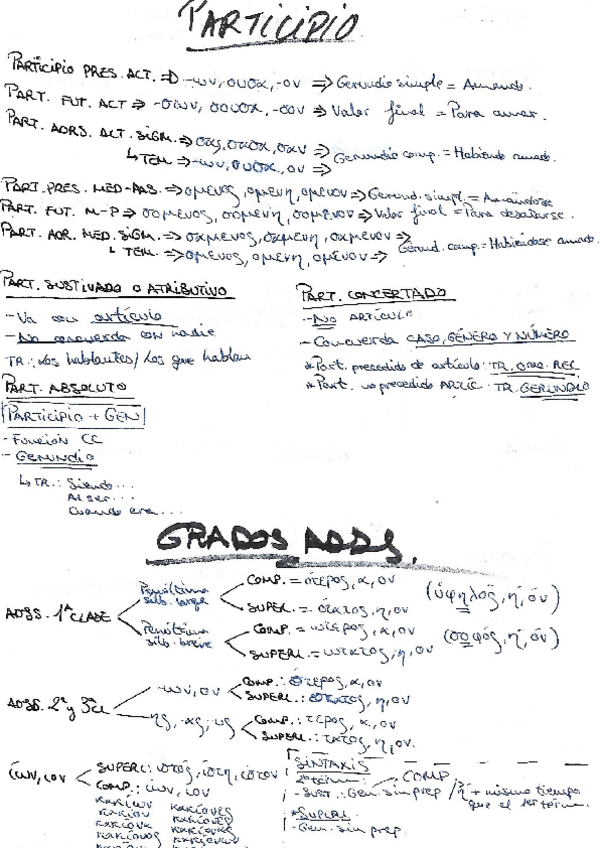 PARTICIPIO
PARTICIPIO PRES. ACT. ⇒ -ων, ουσα, -ον ⇒ Gerundio simple = Amando.
PART. FUT. ACT ⇒ -σων, σουσα, -σον ⇒ Valor final = Para amar.
PART. AORS. ACT. SIGM. ⇒ σας, σασα, σαν ⇒
↳ TEM. ⇒ -ων, ουσα, ον ⇒ Gerundio comp. = Habiendo amado.
PART. PRES. MED-PAS. ⇒ ομενος, ομενη, ομενον ⇒ Gerund. simpl = Amándose
PART. FUT. M-P ⇒ σομενος, σομενη, σομενον ⇒ Valor final = Para desatarse.
PART. AOR. MED. SIGM. ⇒ σαμενος, σαμενη, σαμενον ⇒
↳ TEM. ⇒ ομενος, ομενη, ομενον ⇒ Gerund. comp. = Habiéndose amado.
PART. SUSTIVADO O ATRIBUTIVO
- Va con artículo
- No concuerda con nadie
TR.: los hablantes / Los que hablan
PART. CONCERTADO
- NO ARTÍCULO
- Concuerda CASO, GÉNERO Y NÚMERO
* Part. precedido de artículo: TR. ORO. REL
* Part. no precedido ARTÍC. TR. GERUNDIO
PART. ABSOLUTO
PARTICIPIO + GEN
- Función CC
- GERUNDIO
↳ TR.: Siendo...
Al ser...
Cuando era...
GRADOS ADJS.
ADJS. 1ª CLASE
Penúltima síl. larga
COMP. = ότερος, α, ον
SUPERL. = ότατος, η, ον
(ὑψηλός, ή, όν)
Penúltima síl. breve
COMP. = ώτερος, α, ον
SUPERL. = ωτατος, η, ον
(σοφός, ή, όν)
ADJS. 2ª y 3ª Cl
-ων, ον
COMP.: έστερος, α, ον
SUPERL.: έστατος, η, ον
ης, -ας, -υς
COMP.: τερος, α, ον
SUPERL.: τατος, η, ον.
ίων, ιον
SUPERL: ιστος, ίστη, ιστον
COMP.: ίων, ιον
κακίων κακίονες
κακιον κακίονες
κακίονα κακίονας
κακίονος
SINTAXIS
2º térm. COMP
- SUST.: Gen. sin prep / ἤ + mismo tiempo que el 1er térm.
* SUPERL
- Gen. sin prep.